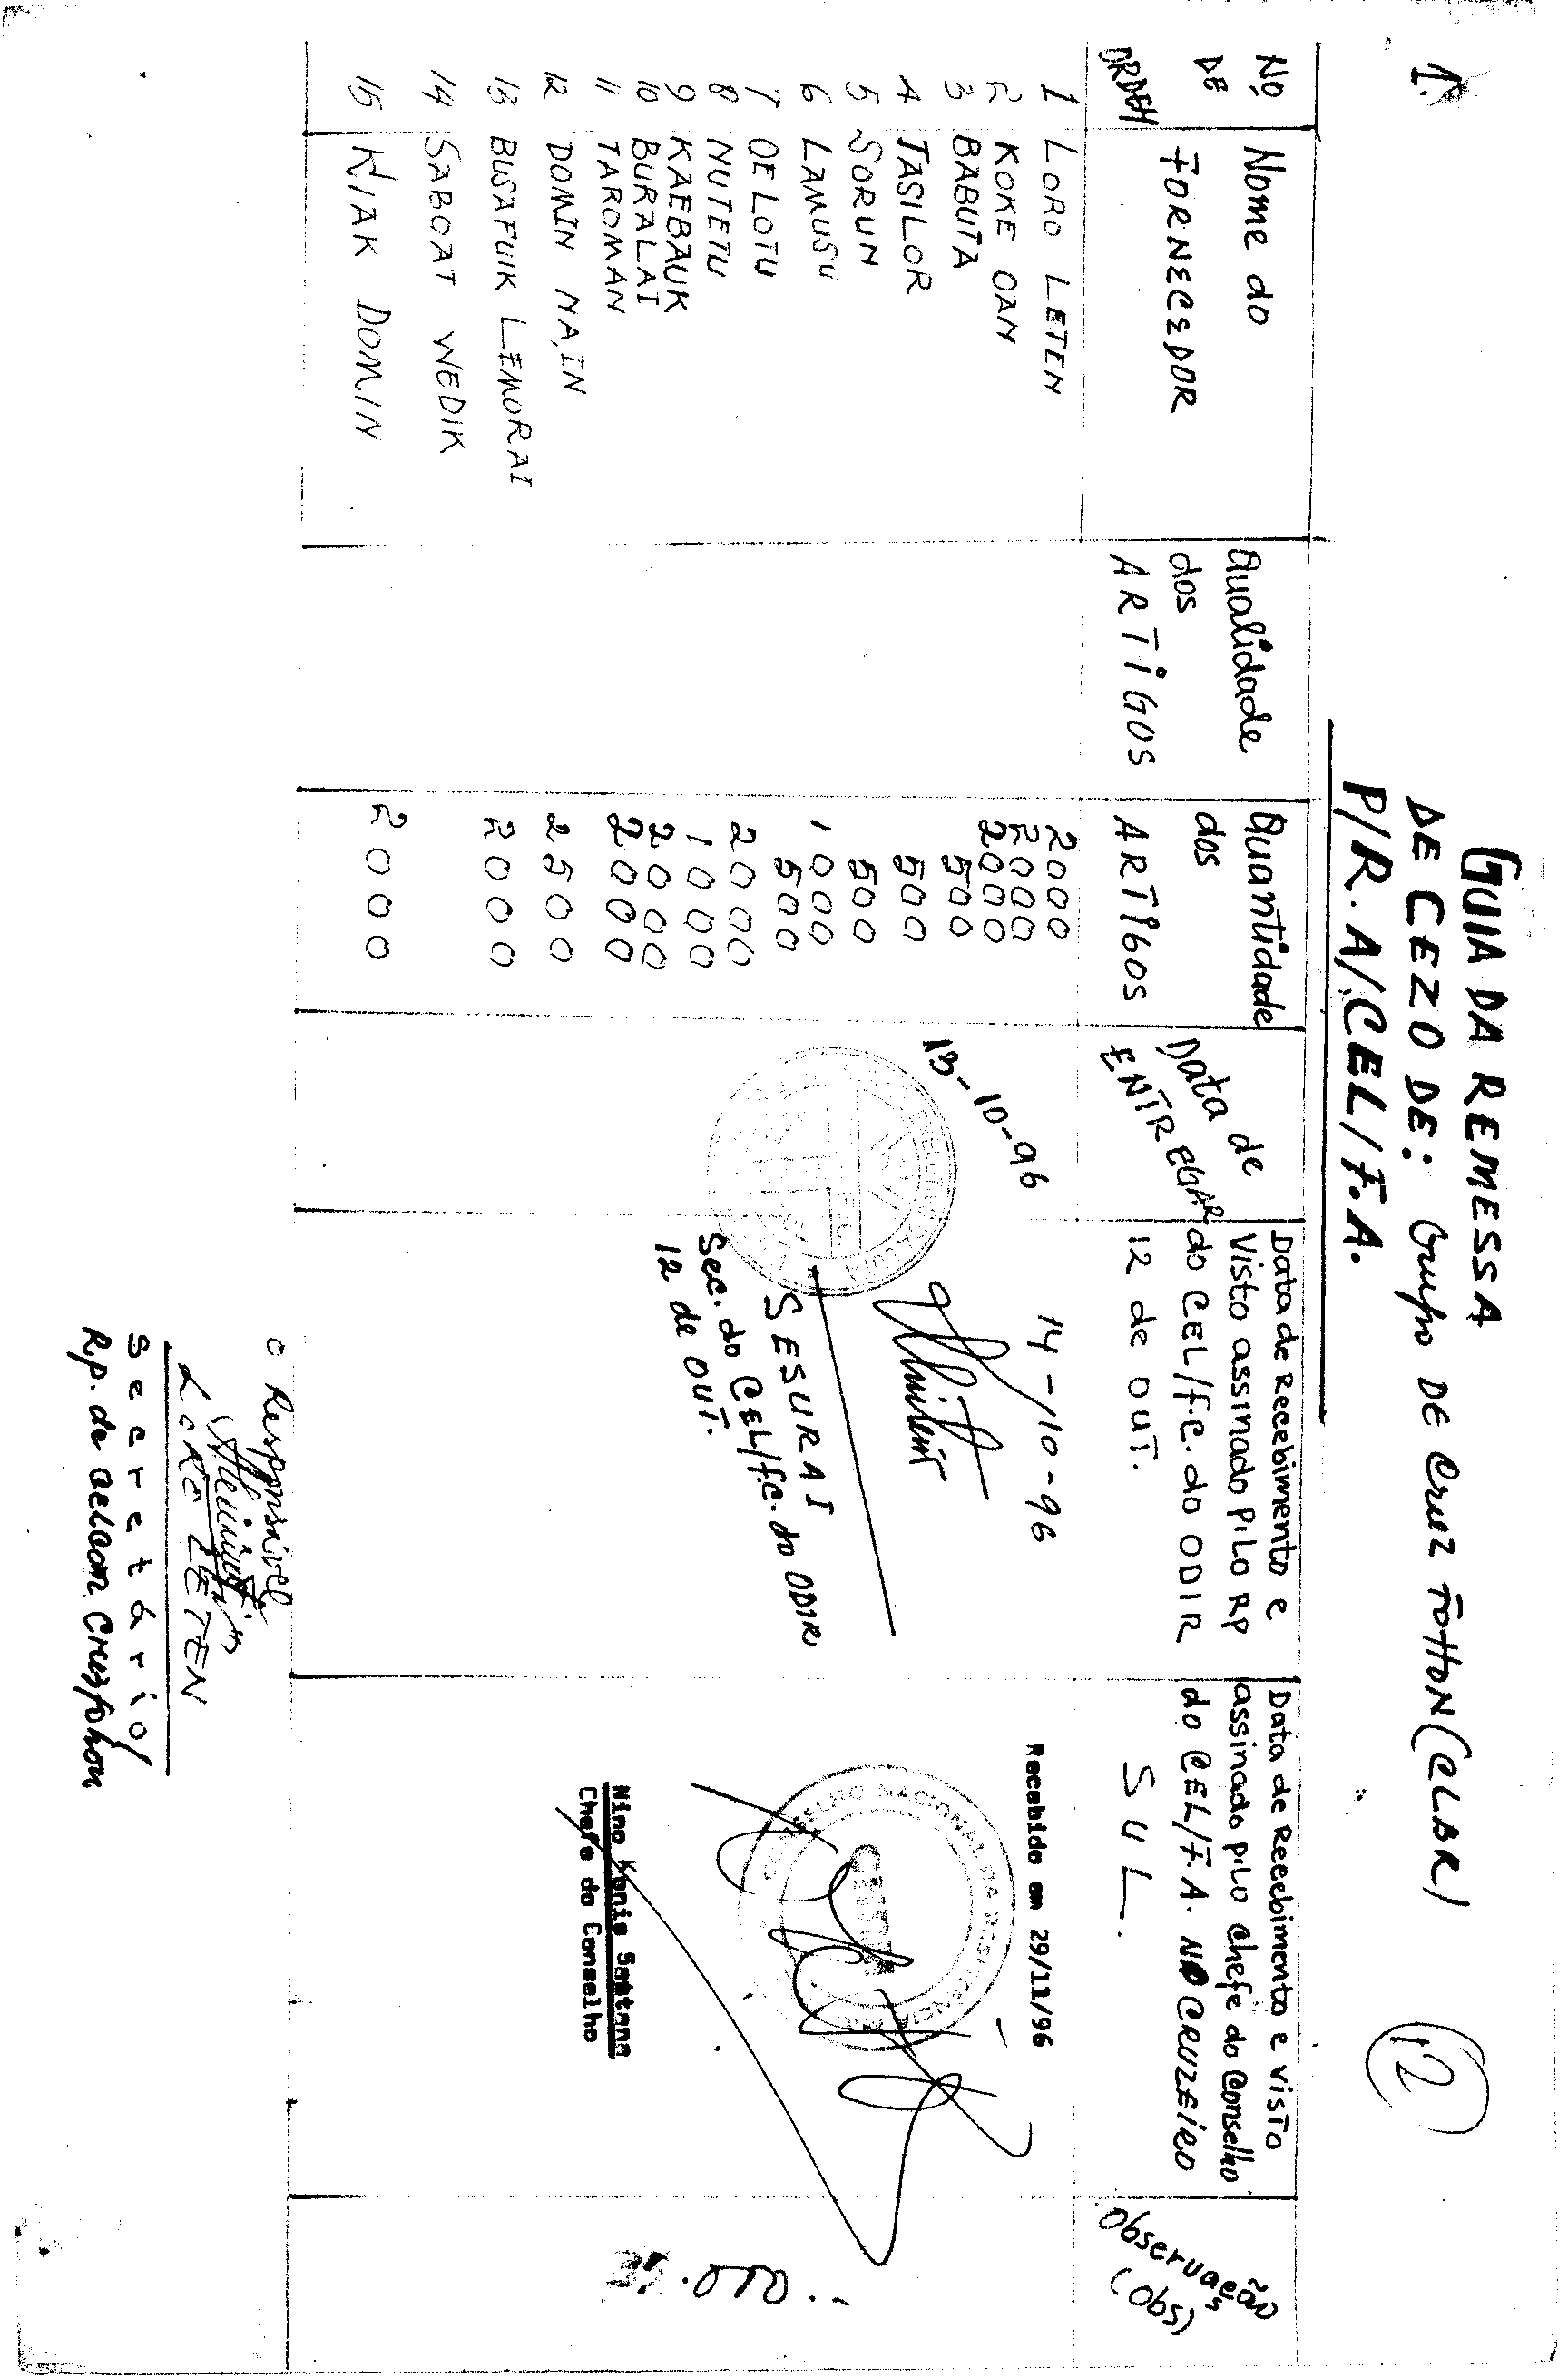 1.
GUIA DA REMESSA
DE CEZO DE: Grupo DE Cruz FOHON (CLBR)
P/R.A/CEL/F.A.
12
Nº DE ORDEM
Nome do FORNECEDOR
Qualidade dos ARTIGOS
Quantidade dos ARTIGOS
Data de ENTREGAR
Data de Recebimento e
Visto assinado pelo RP
do CEL/F.C. do ODIR
12 de OUT.
Data de Recebimento e visto
assinado pelo Chefe do Conselho
do CEL/F.A. NO CRUZEIRO
SUL.
Observação
(Obs)
1 LORO LETEN 2000
2 KOKE OAN 2000
3 BABUTA 2000
4 TASILOR 500
5 SORUN 500
6 LAMUSU 500
7 OELOTU 1000
8 NUTETU 500
9 KAEBAUK 2000
10 BURALAI 1000
11 TAROMAN 2000
12 DOMIN NAIN 2000
13 BUSAFUIK LEMORAI 2500
14 SABOAT WEDIK 2000
15 KIAK DOMIN 2000
13-10-96
14-10-96
SESURAI
Sec. do CEL/F.C. do ODIR
12 de OUT.
Recebido em 29/11/96
CONSELHO NACIONAL DA RESISTENCIA
Nino Konis Santana
Chefe do Conselho
O Responsável
LORO LETEN
Secretário/
Rp. de aelcom Cruzfohon